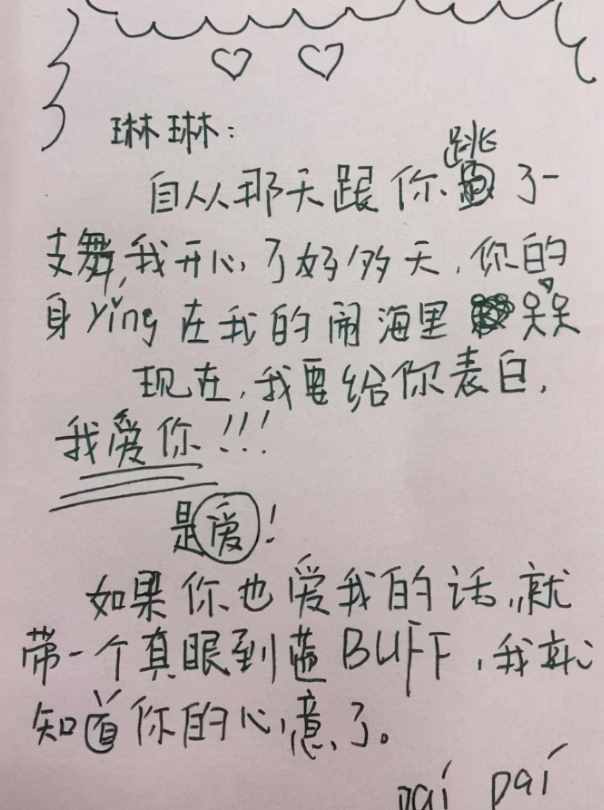 琳琳:
自从那天跟你跳了一
支舞,我开心了好多天,你的
身yǐng在我的闹海里
现在,我要给你表白,
我爱你!!!
是爱!
如果你也爱我的话,就
带一个真眼到蓝BUFF,我就
知道你的心意了。
pái pái